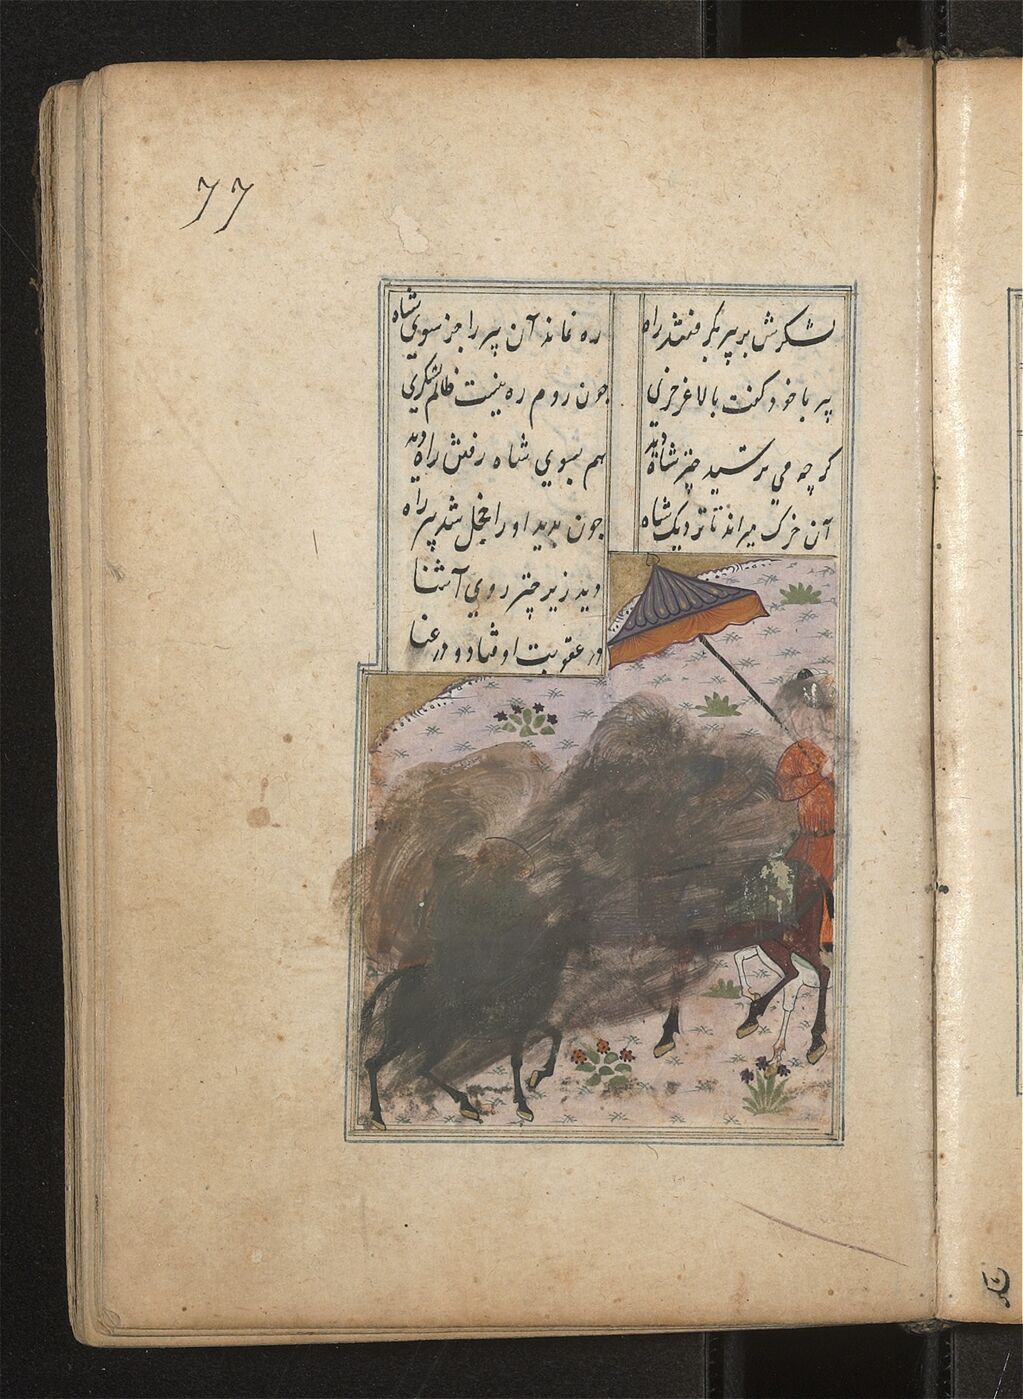 77
لشکرش بر پیر بگرفتند راه ره نماند آن پیر را جز سوی شاه
پیر با خود گفت با لاغر خری جون روم ره نیست ظالم لشکری
گر چه می ترسید چتر شاه دید هم بسوی شاه رفتن راه دید
آن خرک میراند تا نزدیک شاه جون بدید او را خجل شد پیر راه
دید زیر چتر روی آشنا
در عقوبت اوفتاد و در عنا